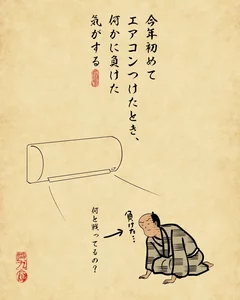 今年初めて
エアコンつけたとき、
何かに負けた
気がする
負けた…
何と戦ってるの？